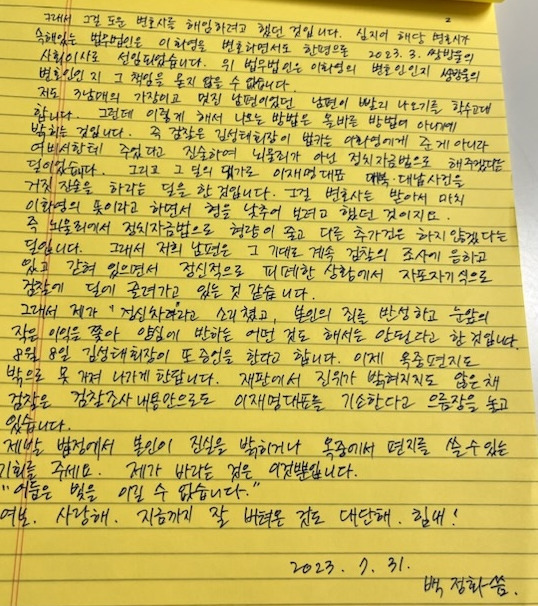 2
그래서 그걸 도운 변호사를 해임하려고 했던 것입니다. 심지어 해당 변호사가
속해있는 법무법인은 이화영을 변호하면서도 한편으로 2023. 3. 쌍방울의
사외이사로 선임되었습니다. 위 법무법인은 이화영의 변호인인지 쌍방울의
변호인인지 그 책임을 묻지 않을 수 없습니다.
저도 3남매의 가장이고 멋진 남편이었던 남편이 빨리 나오기를 학수고대
합니다. 그런데 이렇게 해서 나오는 방법은 올바른 방법이 아니기에
밝히는 것입니다. 즉 검찰은 김성태회장이 법카는 이화영에게 준게 아니라
여비서한테 주었다고 진술하여 뇌물죄가 아닌 정치자금법으로 해주겠다는
딜이었습니다. 그리고 그 딜의 댓가로 이재명대표 대북·대납사건을
거짓 진술을 하라는 딜을 한 것입니다. 그걸 변호사는 받아서 마치
이화영의 뜻이라고 하면서 형을 낮추어 보려고 했던 것이지요.
즉 뇌물죄에서 정치자금법으로 형량이 줄고 다른 추가건은 하지 않겠다는
딜입니다. 그래서 저희 남편은 그 기대로 계속 검찰의 조사에 응하고
있고 갇혀 있으면서 정신적으로 피폐한 상황에서 자포자기식으로
검찰에 딜에 끌려가고 있는 것 같습니다.
그래서 제가 "정신차려라고 소리쳤고, 본인의 죄를 반성하고 눈앞의
작은 이익을 쫓아 양심에 반하는 어떤 것도 해서는 안된다고 한 것입니다.
8월 8일 김성태회장이 또 증언을 한다고 합니다. 이제 옥중편지도
밖으로 못 가져 나가게 한답니다. 재판에서 진위가 밝혀지지도 않은 채
검찰은 검찰조사 내용만으로도 이재명대표를 기소한다고 으름장을 놓고
있습니다.
제발 법정에서 본인이 진실을 밝히거나 옥중에서 편지를 쓸 수 있는
기회를 주세요. 제가 바라는 것은 이것뿐입니다.
"어둠은 빛을 이길 수 없습니다."
여보. 사랑해. 지금까지 잘 버텨온 것도 대단해. 힘내!
2023. 7. 31.
백정화 씀.